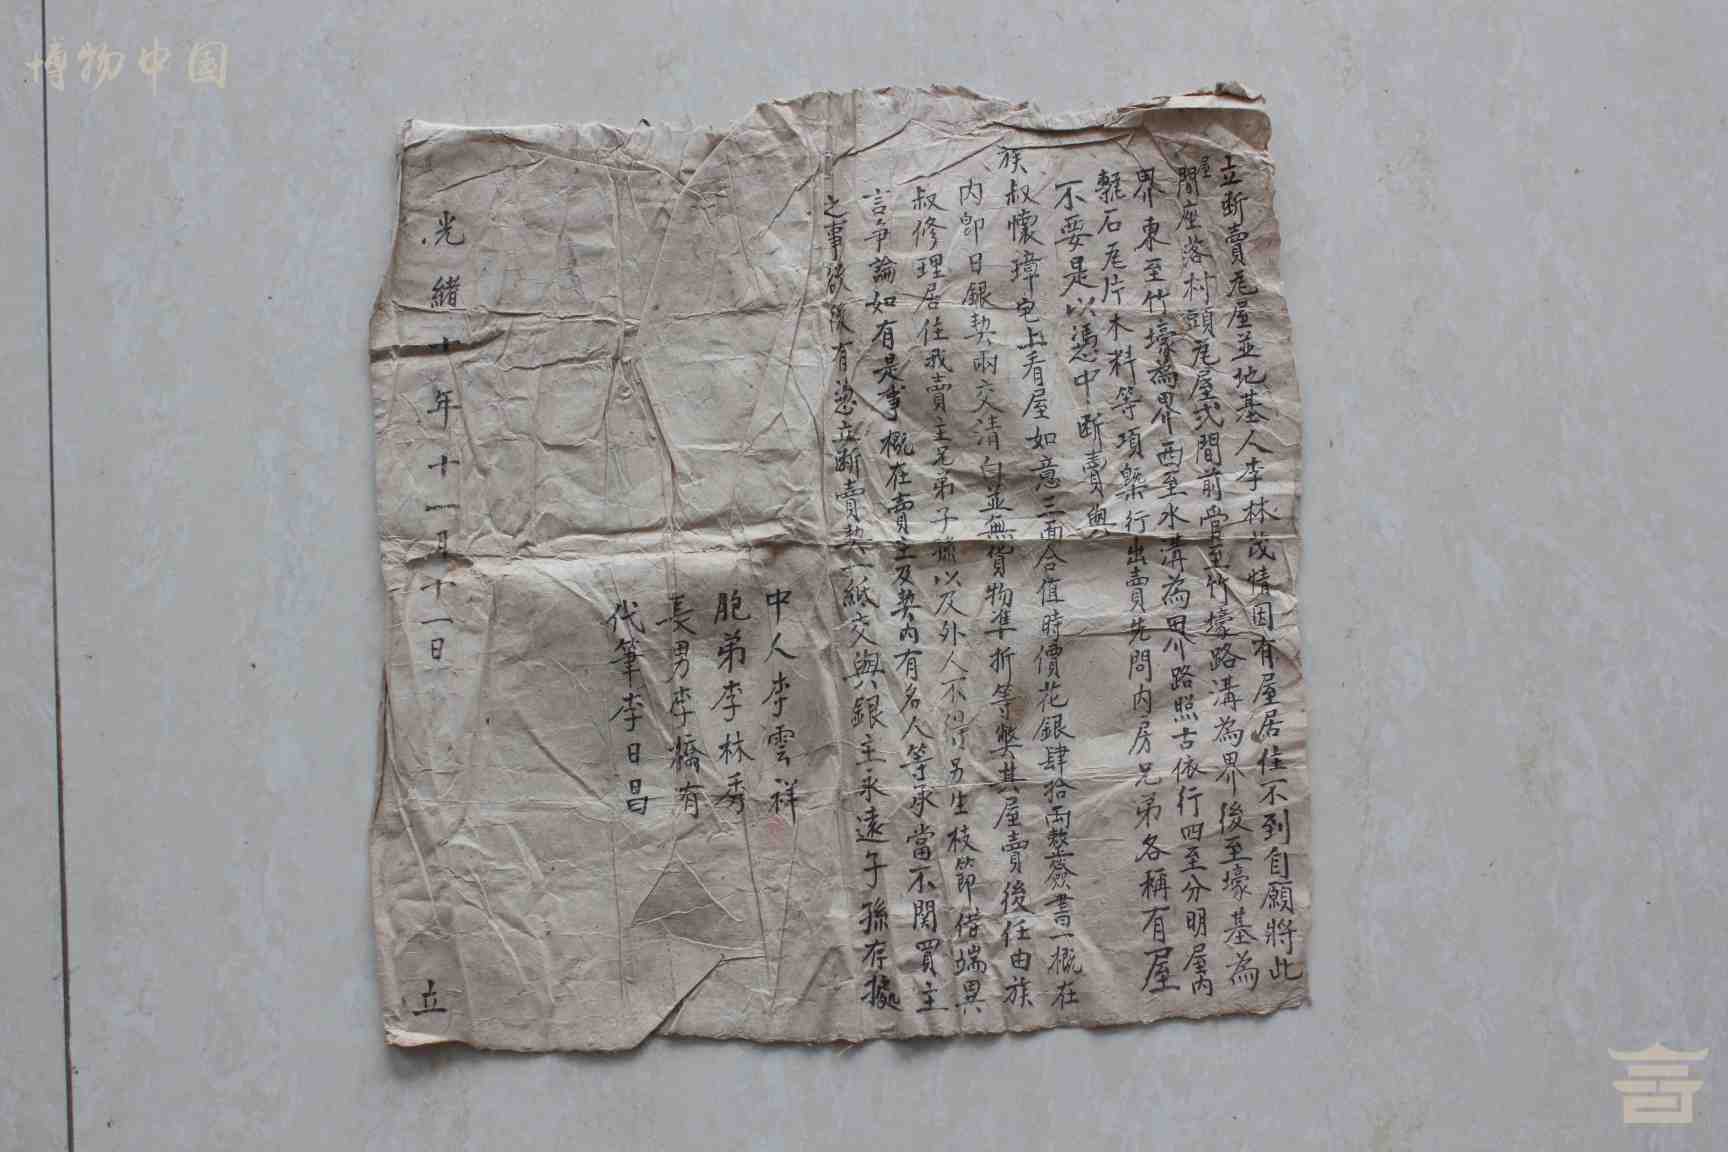 博物中国
立断賣瓦屋並地基人李林茂情因有屋居住不到自願將此
屋間座落村頭瓦屋弍間前當至竹壕路溝為界後至壕基為
界東至竹壕為界西至水溝為界路照古依行四至分明屋内
石瓦片木料等項槩行出賣先問内房兄弟各稱有屋
不要是以憑中断賣與
族叔懷璋宅上看屋如意三面合值時價花銀肆拾兩整簽書一概在
内即日銀契兩交清白並無貨物準折等獘其屋賣後任由族
叔修理居住我賣主兄弟子孫以及外人不得另生枝節借端異
言爭論如有是事概在賣主及契内有名人等承當不関買主
之事欲後有憑立断賣契一紙交與銀主永遠子孫存據
中人李雲祥
胞弟李林秀
長男李橋有
代筆李日昌
光緒十年十一月十一日 立